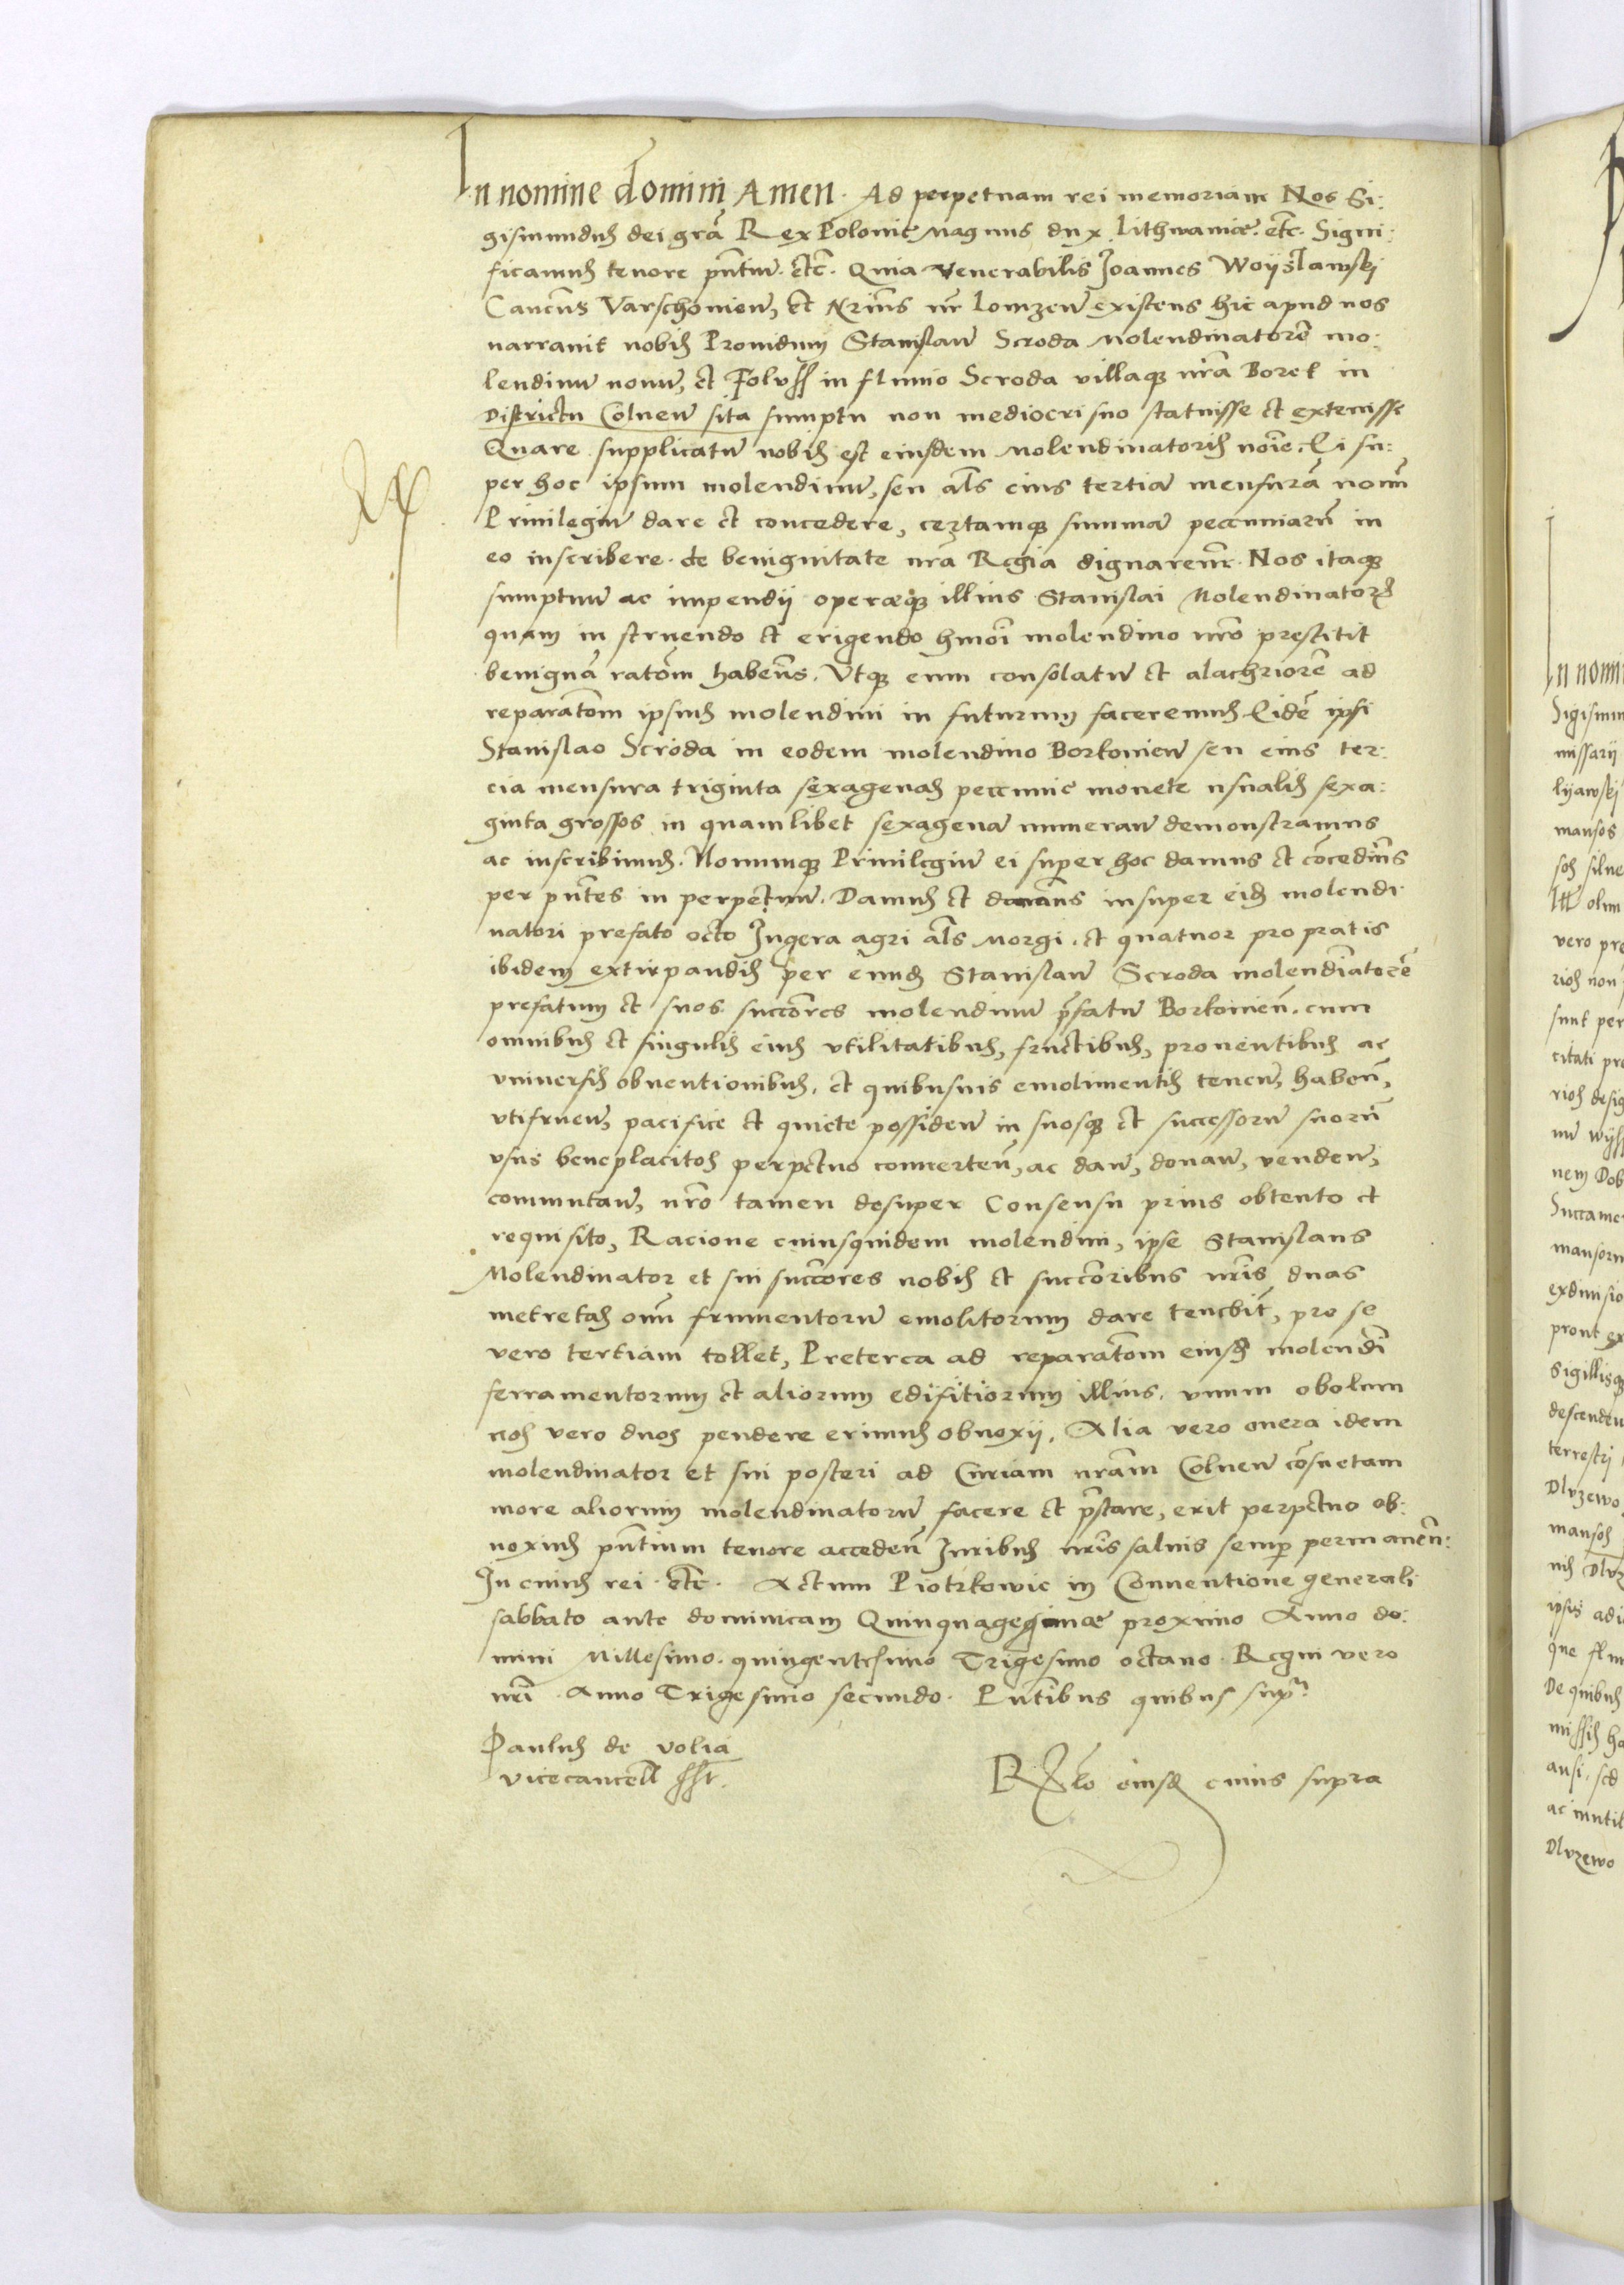 In nomine domini Amen. Ad perpetuam rei memoriam Nos Si:
gismundus dei gra Rex Polonie Magnus dux Lithwaniæ. etc. Signi:
ficamus tenore pntium. etc. Quia Venerabilis Joannes Woyslawskj
Cancus Varschouien, et Nrius nr Lomzen existens hic apud nos
narrauit nobis Prouidum Stanislaum Scroda Molendinatorem mo:
lendinum nouum, et Foluss in fluuio Scroda villaque nra Borek in
Districtu Colnen sita sumptu non mediocri suo statuisse et extruisse
Quare supplicatum nobis est eiusdem Molendinatoris noie. Ei su:
per hoc ipsum molendinum, seu als eius tertiam mensuram nouum
Priuilegium dare et concedere, certamque summam peccuniarum in
eo inscribere de benignitate nra Regia dignaremur. Nos itaque
sumptuum ac impendij operæque illius Stanislai Molendinatoris
quam in struendo et erigendo hmoi molendino nro prestitit
benignam ratom habens. Vtque eum consolatum et alachriorem ad
reparatom ipsius molendini in futurum faceremus Eidem ipsi
Stanislao Scroda in eodem molendino Borkouien seu eius ter:
cia mensura triginta sexagenas peccunie monete usualis sexa:
ginta grossos in quamlibet sexagenam numeran demonstramus
ac inscribimus. Nouumque Priuilegium ei super hoc damus et concedimus
per pntes in perpetuum. Damus et donamus insuper eidem molendi
natori prefato octo Jugera agri als Morgi. et quatuor pro pratis
ibidem extirpandis per eundem Stanislaum Scroda molendinatorem
prefatum et suos succores molendinum prefatum Borkouien. cum
omnibus et singulis eius vtilitatibus, fructibus, prouentibus ac
vniuersis obuentionibus. et quibusuis emolimentis tenen, haben,
vtifruen, pacifice et quiete possiden in suosque et successorum suorum
vsus beneplacitos perpetuo conuerten, ac dan, donan, venden,
commutan, nro tamen desuper Consensu prius obtento et
requisito, Racione cuiusquidem molendini, ipse Stanislaus
Molendinator et sui succores nobis et succoribus nris duas
metretas oim frumentorum emolitorum dare tenebit, pro se
vero tertiam tollet, Preterea ad reparatom eiusdem molendi
ferramentorum et aliorum edifitiorum illius. vnum obolum
nos vero duos pendere erimus obnoxij. Alia vero onera idem
molendinator et sui posteri ad Curiam nram Colnen consuetam
more aliorum molendinatorum facere et prestare, erit perpetuo ob:
noxius pntium tenore acceden Juribus nris saluis semper permanen:
In cuius rei etc. Actum Piotrkowie in Conuentione generali
sabbato ante dominicam Quinquagesimæ proximo Anno do:
mini Millesimo quingentesimo Trigesimo octauo. Regni vero
nri Anno Trigesimo secundo. Pntibus quibus supra
Paulus de Volia
Vicecancell sst.
Rlo eiusdem cuius supra